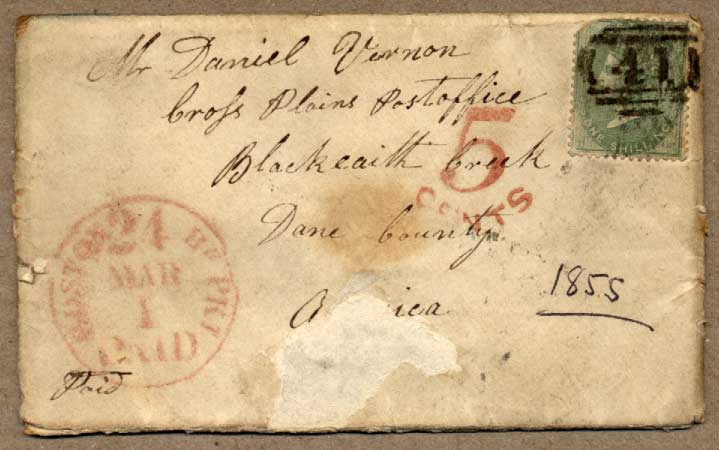 Mr Daniel Vernon
Cross Plains Postoffice
Blackeaith Creek
Dane County
A ica
1855
Paid
5
CENTS
BOSTON Br PKT
24
MAR
1
PAID
411
ONE SHILLING